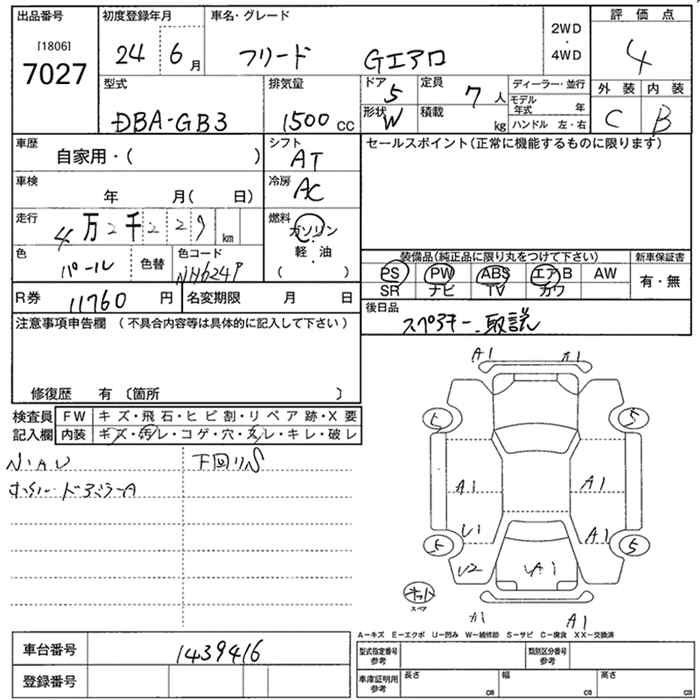 出品番号
[1806]
7027
初度登録年月
24 6月
車名・グレード
フリード Gエアロ
2WD
・
4WD
評価点
4
外装 内装
C B
型式
DBA-GB3
排気量
1500 CC
ドア 5
形状 W
定員 7 人
積載 kg
ディーラー・並行
モデル年式 年
ハンドル 左・右
車歴
自家用・( )
シフト
AT
セールスポイント(正常に機能するものに限ります)
車検
年 月( 日)
冷房
AC
走行
4万2千229 km
燃料
ガソリン
軽・油
( )
色
パール
色替
色コード
NH624P
装備品(純正品に限り丸をつけて下さい)
新車保証書
PS PW ABS エアB AW
SR ナビ TV カワ
有・無
R券 11760 円
名変期限 月 日
後日品
スペアキー、取説
注意事項申告欄 (不具合内容等は具体的に記入して下さい)
修復歴 有〔箇所 〕
検査員
記入欄
FW キズ・飛石・ヒビ割・リペア跡・X要
内装 キズ・汚レ・コゲ・穴・スレ・キレ・破レ
下回りS
A1 A1
5 5
A1 A1
U1 A1
5 5
U2 UA1
スペア
A1 A1
A-キズ E-エクボ U-凹み W-補修跡 S-サビ C-腐食 XX-交換済
車台番号 1439416
登録番号
型式指定番号
参考
類別区分番号
参考
車庫証明用
参考
長さ cm
幅 cm
高さ cm